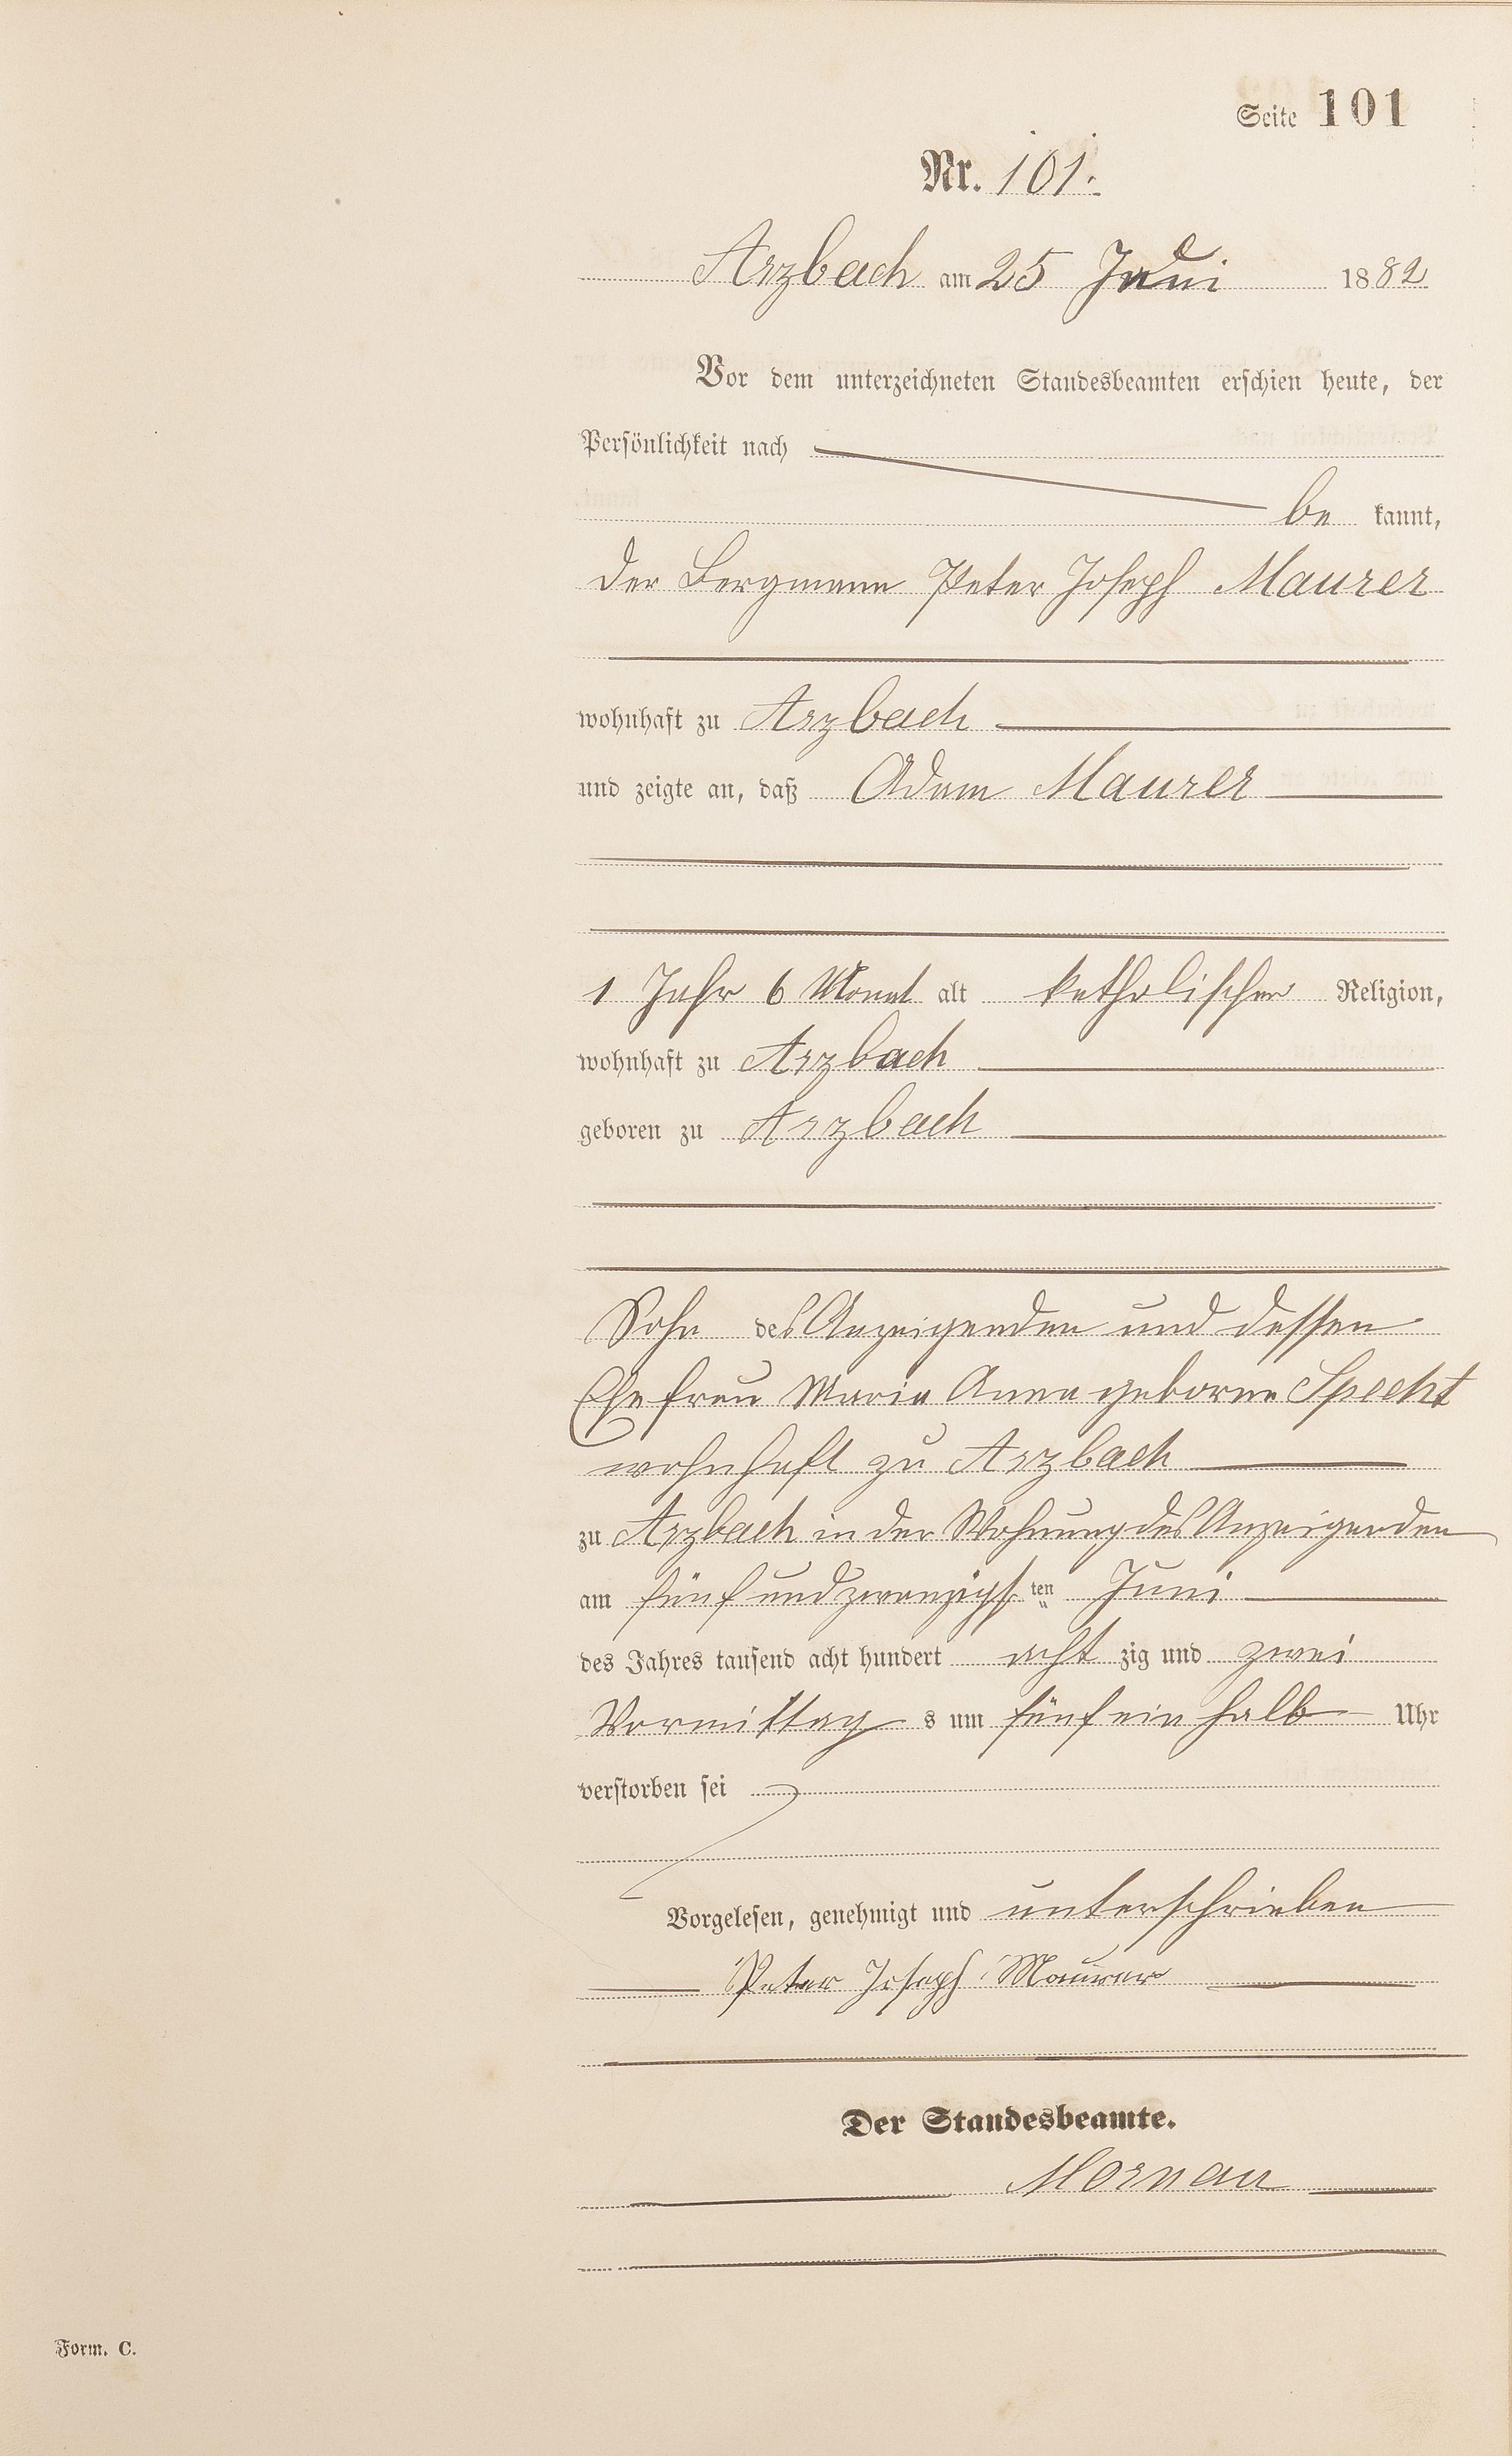 Seite 101
Nr. 101.
Arzbach am 25 Juni 1882
Vor dem unterzeichneten Standesbeamten erschien heute, der
Persönlichkeit nach
be kannt,
der Bergmann Peter Joseph Maurer
wohnhaft zu Arzbach
und zeigte an, daß Adam Maurer
1 Jahr 6 Monat alt katholischer Religion,
wohnhaft zu Arzbach
geboren zu Arzbach
Sohn des Anzeigenden und dessen
Ehefrau Maria Anna geborne Specht
wohnhaft zu Arzbach
zu Arzbach in der Wohnung des Anzeigenden
am fünfundzwanzigsten ten Juni
des Jahres tausend acht hundert acht zig und zwei
Vormittag s um fünf ein halb Uhr
verstorben sei
Vorgelesen, genehmigt und unterschrieben
Peter Joseph Maurer
Der Standesbeamte.
Mornau
Form. C.